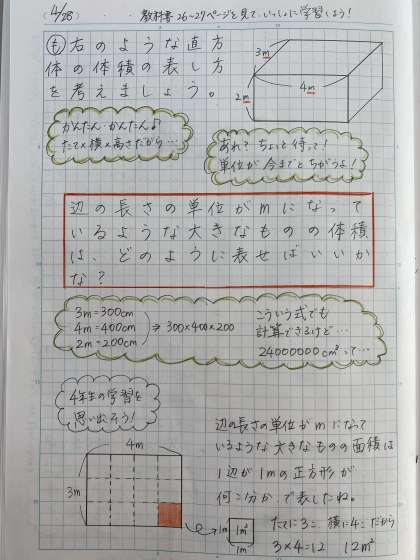 4/28
教科書26~27ページを見て、いっしょに学習しよう!
も 右のような直方
体の体積の表し方
を考えましょう。
3m
2m
4m
かんたん・かんたん♪
たて×横×高さだから…
あれ?ちょっと待って!
単位が今までとちがうよ!
辺の長さの単位がmになって
いるような大きなものの体積
は、どのように表せばいいか
な?
3m=300cm
4m=400cm
2m=200cm
⇒300×400×200
こういう式でも
計算できるけど…
24000000cm³って…
4年生の学習を
思い出そう!
4m
3m
1m
1m²
1m
辺の長さの単位がmになって
いるような大きなものの面積は
1辺が1mの正方形が
何こ分かで表したね。
たてに3こ 横に4こだから
3×4=12 12m²